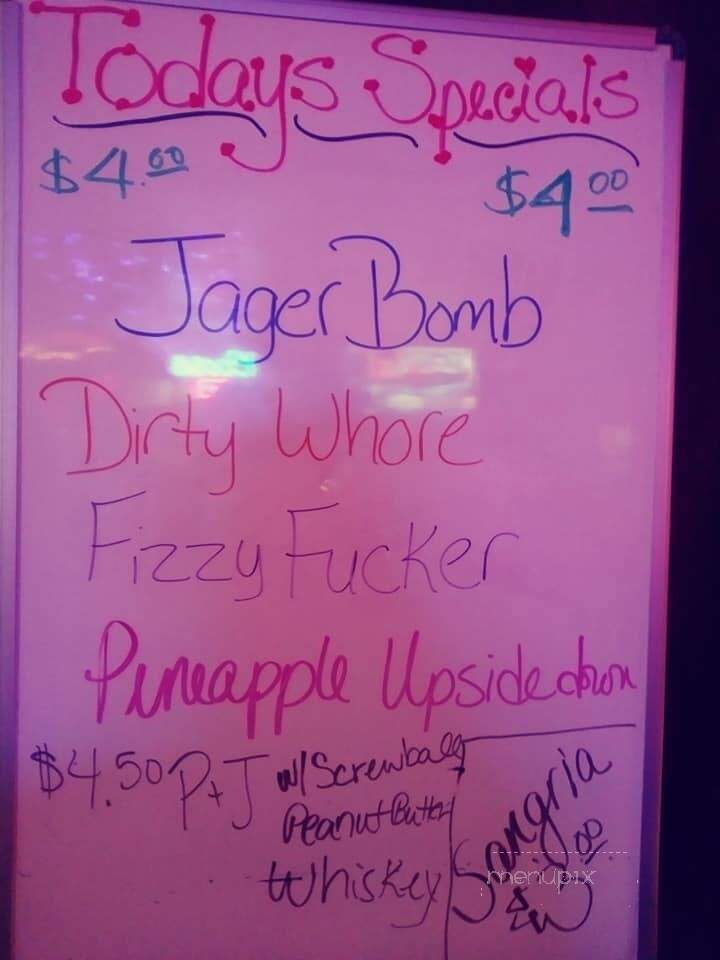 Todays Specials
$4.00 $4 00
Jager Bomb
Dirty Whore
Fizzy Fucker
Pineapple Upside down
$4.50 P+J w/ Screwball
Peanut Butter
Whiskey
Sangria
menupix